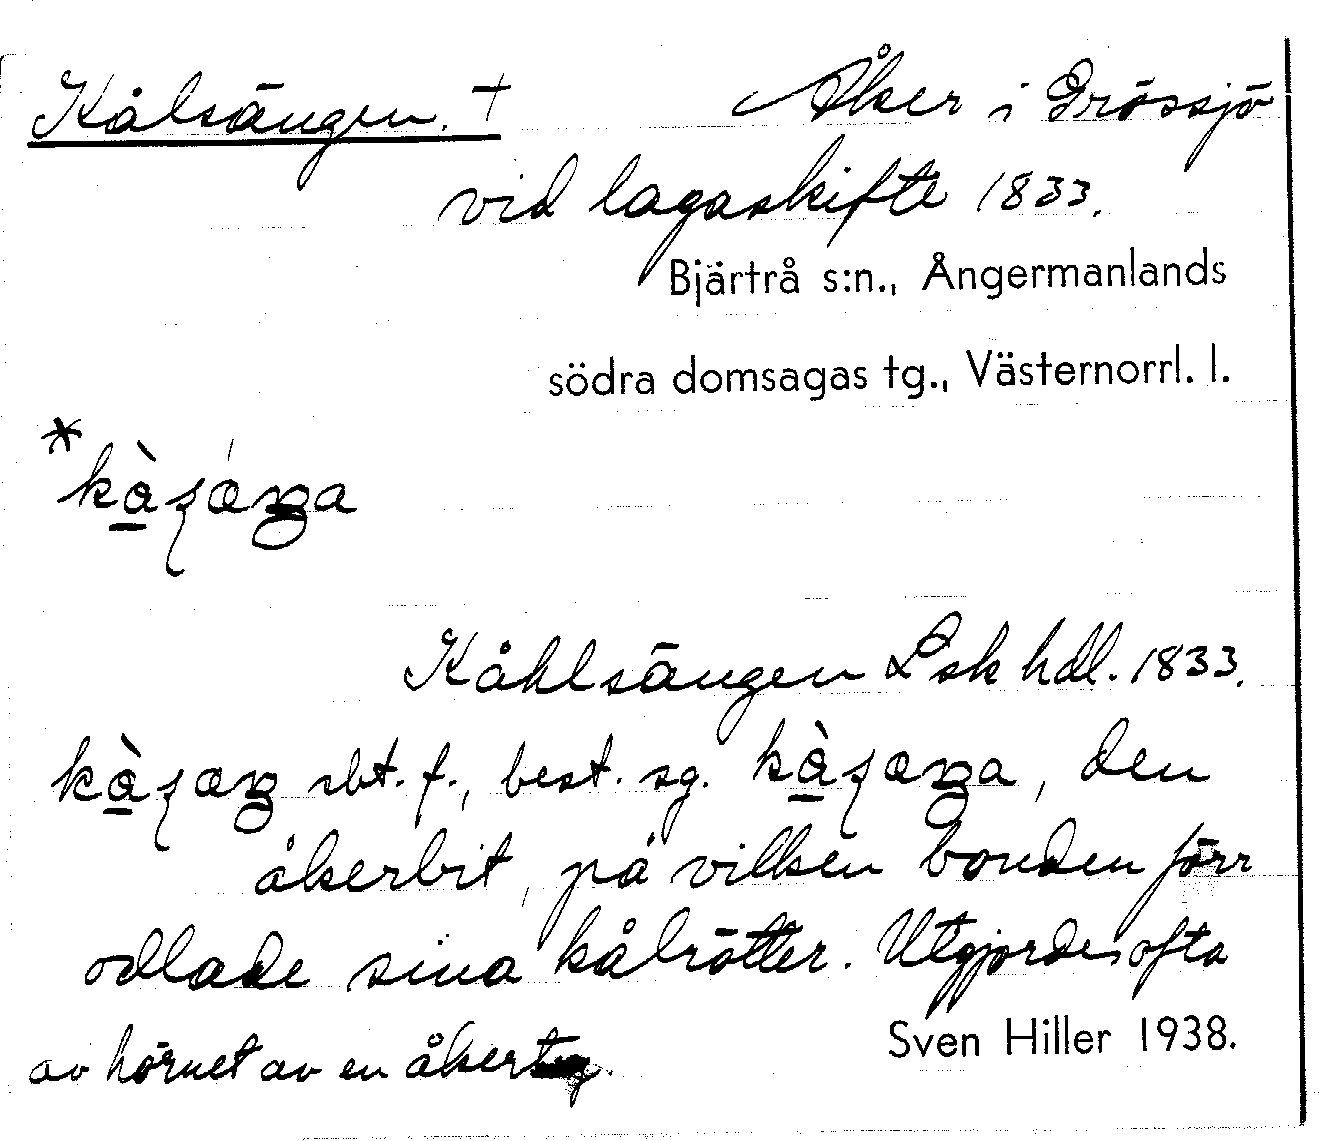 Kålsängen. †
Åker i Grössjö
vid lagaskifte 1833.
Bjärtrå s:n., Ångermanlands
södra domsagas tg., Västernorrl. l.
Kåhlsängen Lsk hdl. 1833.
sbt. f., best. sg. , den
åkerbit, på vilken bonden förr
odlade sina kålrötter. Utgjordes ofta
av hörnet av en åkerteg.
Sven Hiller 1938.